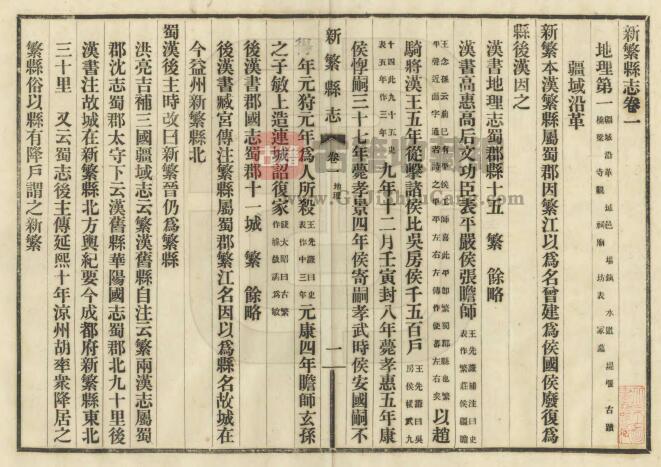 新繁縣志卷一
地理第一 疆域沿革 城邑場鎮 水道堤堰 古蹟 橋梁 寺觀 祠廟 坊表 冢墓
疆域沿革
新繁本漢繁縣屬蜀郡因繁江以爲名曾建爲侯國侯廢復爲
縣後漢因之
漢書地理志蜀郡縣十五 繁 餘略
漢書高惠高后文功臣表平嚴侯張瞻師 王先謙補注曰史表作繁莊侯彊瞻
以趙
騎將漢王五年從擊諸侯比吳房侯千五百戶
九年十二月壬寅封八年薨孝惠五年康
侯惸嗣三十七年薨孝景四年侯寄嗣孝武時侯安國嗣不
年元狩元年爲人所殺 王先謙曰史表作中三年 元康四年瞻師玄孫
之子敏上造連城詔復家 錢大昭曰古繁作緐故訛爲敏
後漢書郡國志蜀郡十一城 繁 餘略
後漢書臧宮傳注繁縣屬蜀郡繁江名因以爲縣名故城在
今益州新繁縣北
蜀漢後主時改曰新繁晉仍爲繁縣
洪亮吉補三國疆域志云繁漢舊縣自注云繁兩漢志屬蜀
郡沈志蜀郡太守下云漢舊縣華陽國志蜀郡北九十里後
漢書注故城在新繁縣北方輿紀要今成都府新繁縣東北
三十里 又云蜀志後主傳延熙十年涼州胡率衆降居之
繁縣俗以縣有降戶謂之新繁
新繁縣志
卷一
地理
一
古籍